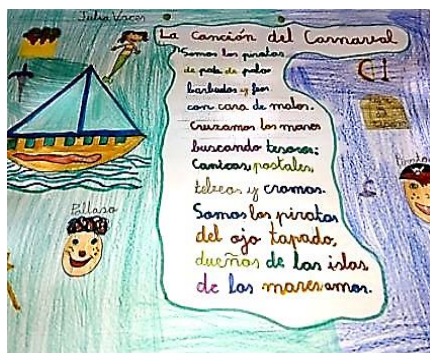 Julia
La canción del Carnaval
Somos los piratas
de pata de palo
barbudos y feos
con cara de malos.
Cruzamos los mares
buscando tesoros:
Canicas, postales,
tebeos y cromos.
Somos los piratas
del ojo tapado,
dueños de las islas
de los mares amos.
Pallaso